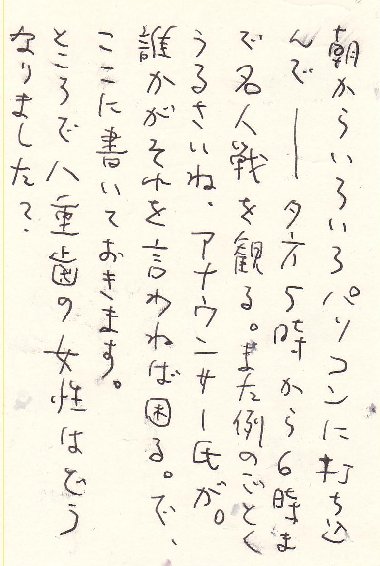 朝からいろいろパソコンに打ち込
んで――夕方5時から6時ま
で名人戦を観る。また例のごとく
うるさいね、アナウンサー氏が。
誰かがそれを言わねば困る。で、
ここに書いておきます。
ところで八重歯の女性はどう
なりました？